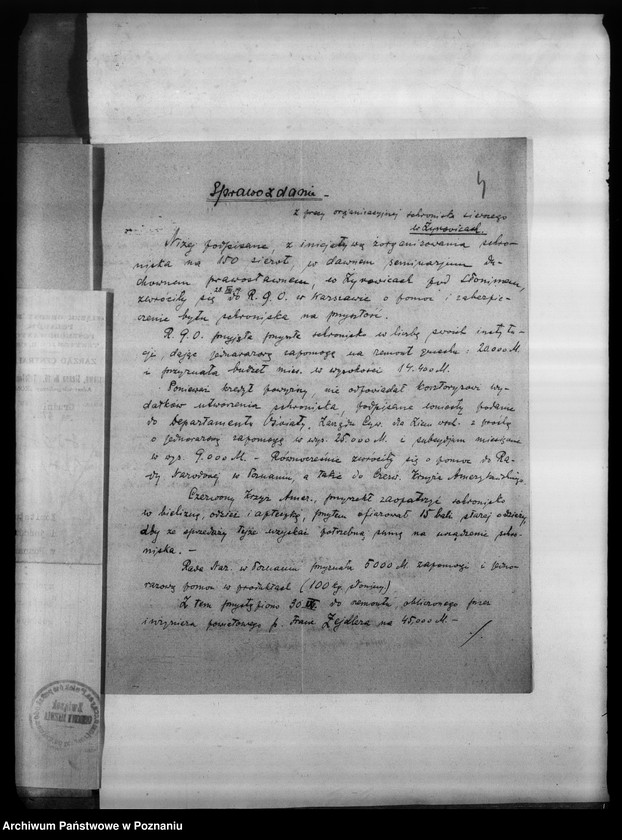 4
Sprawozdanie
z pracy organizacyjnej schroniska sierocego
w Żyrowicach.
Niżej podpisane, z inicjatywą zorganizowania schro-
niska na 150 sierot, w dawnem seminarjum du-
chownem prawosławnem, w Żyrowicach pod Słonimem,
zwróciły się do R. G. O. w Warszawie o pomoc i zabezpie-
czenie bytu schroniska na przyszłość.
R. G. O. przyjęła schronisko w liczbę swoich instytu-
cji, dając jednorazową zapomogę na remont gmachu: 20000 M.
i przyznała budżet mies. w wysokości 14.400 M.
Ponieważ kredyt powyższy, nie odpowiadał kosztorysowi wy-
datków utworzenia schroniska, podpisane wniosły podanie
do Departamentu Oświaty, Zarządu Cyw. do Ziem wsch. z prośbą
o jednorazową zapomogę w wys. 25.000 M. i subsydjum miesięczne
w wys. 9.000 M. – Równocześnie zwróciły się o pomoc do Ra-
dy Narodowej w Poznaniu, a także do Czerw. Krzyża Amerykańskiego.
Czerwony Krzyż Amer., przyrzekł zaopatrzyć schronisko
w bieliznę, odzież i apteczkę, przytem ofiarował 15 bali starej odzieży,
aby ze sprzedaży tejże uzyskać potrzebną sumę na urządzenie schro-
niska. –
Rada Nar. w Poznaniu przyznała 5000 M. zapomogi i jedno-
razową pomoc w produktach (100 kg. słoniny)
Z tem przystąpiono 30 do remontu, obliczonego przez
inżyniera powiatowego p. Zejdlera na 45.000 M –
Związek
Archiwum Państwowe w Poznaniu